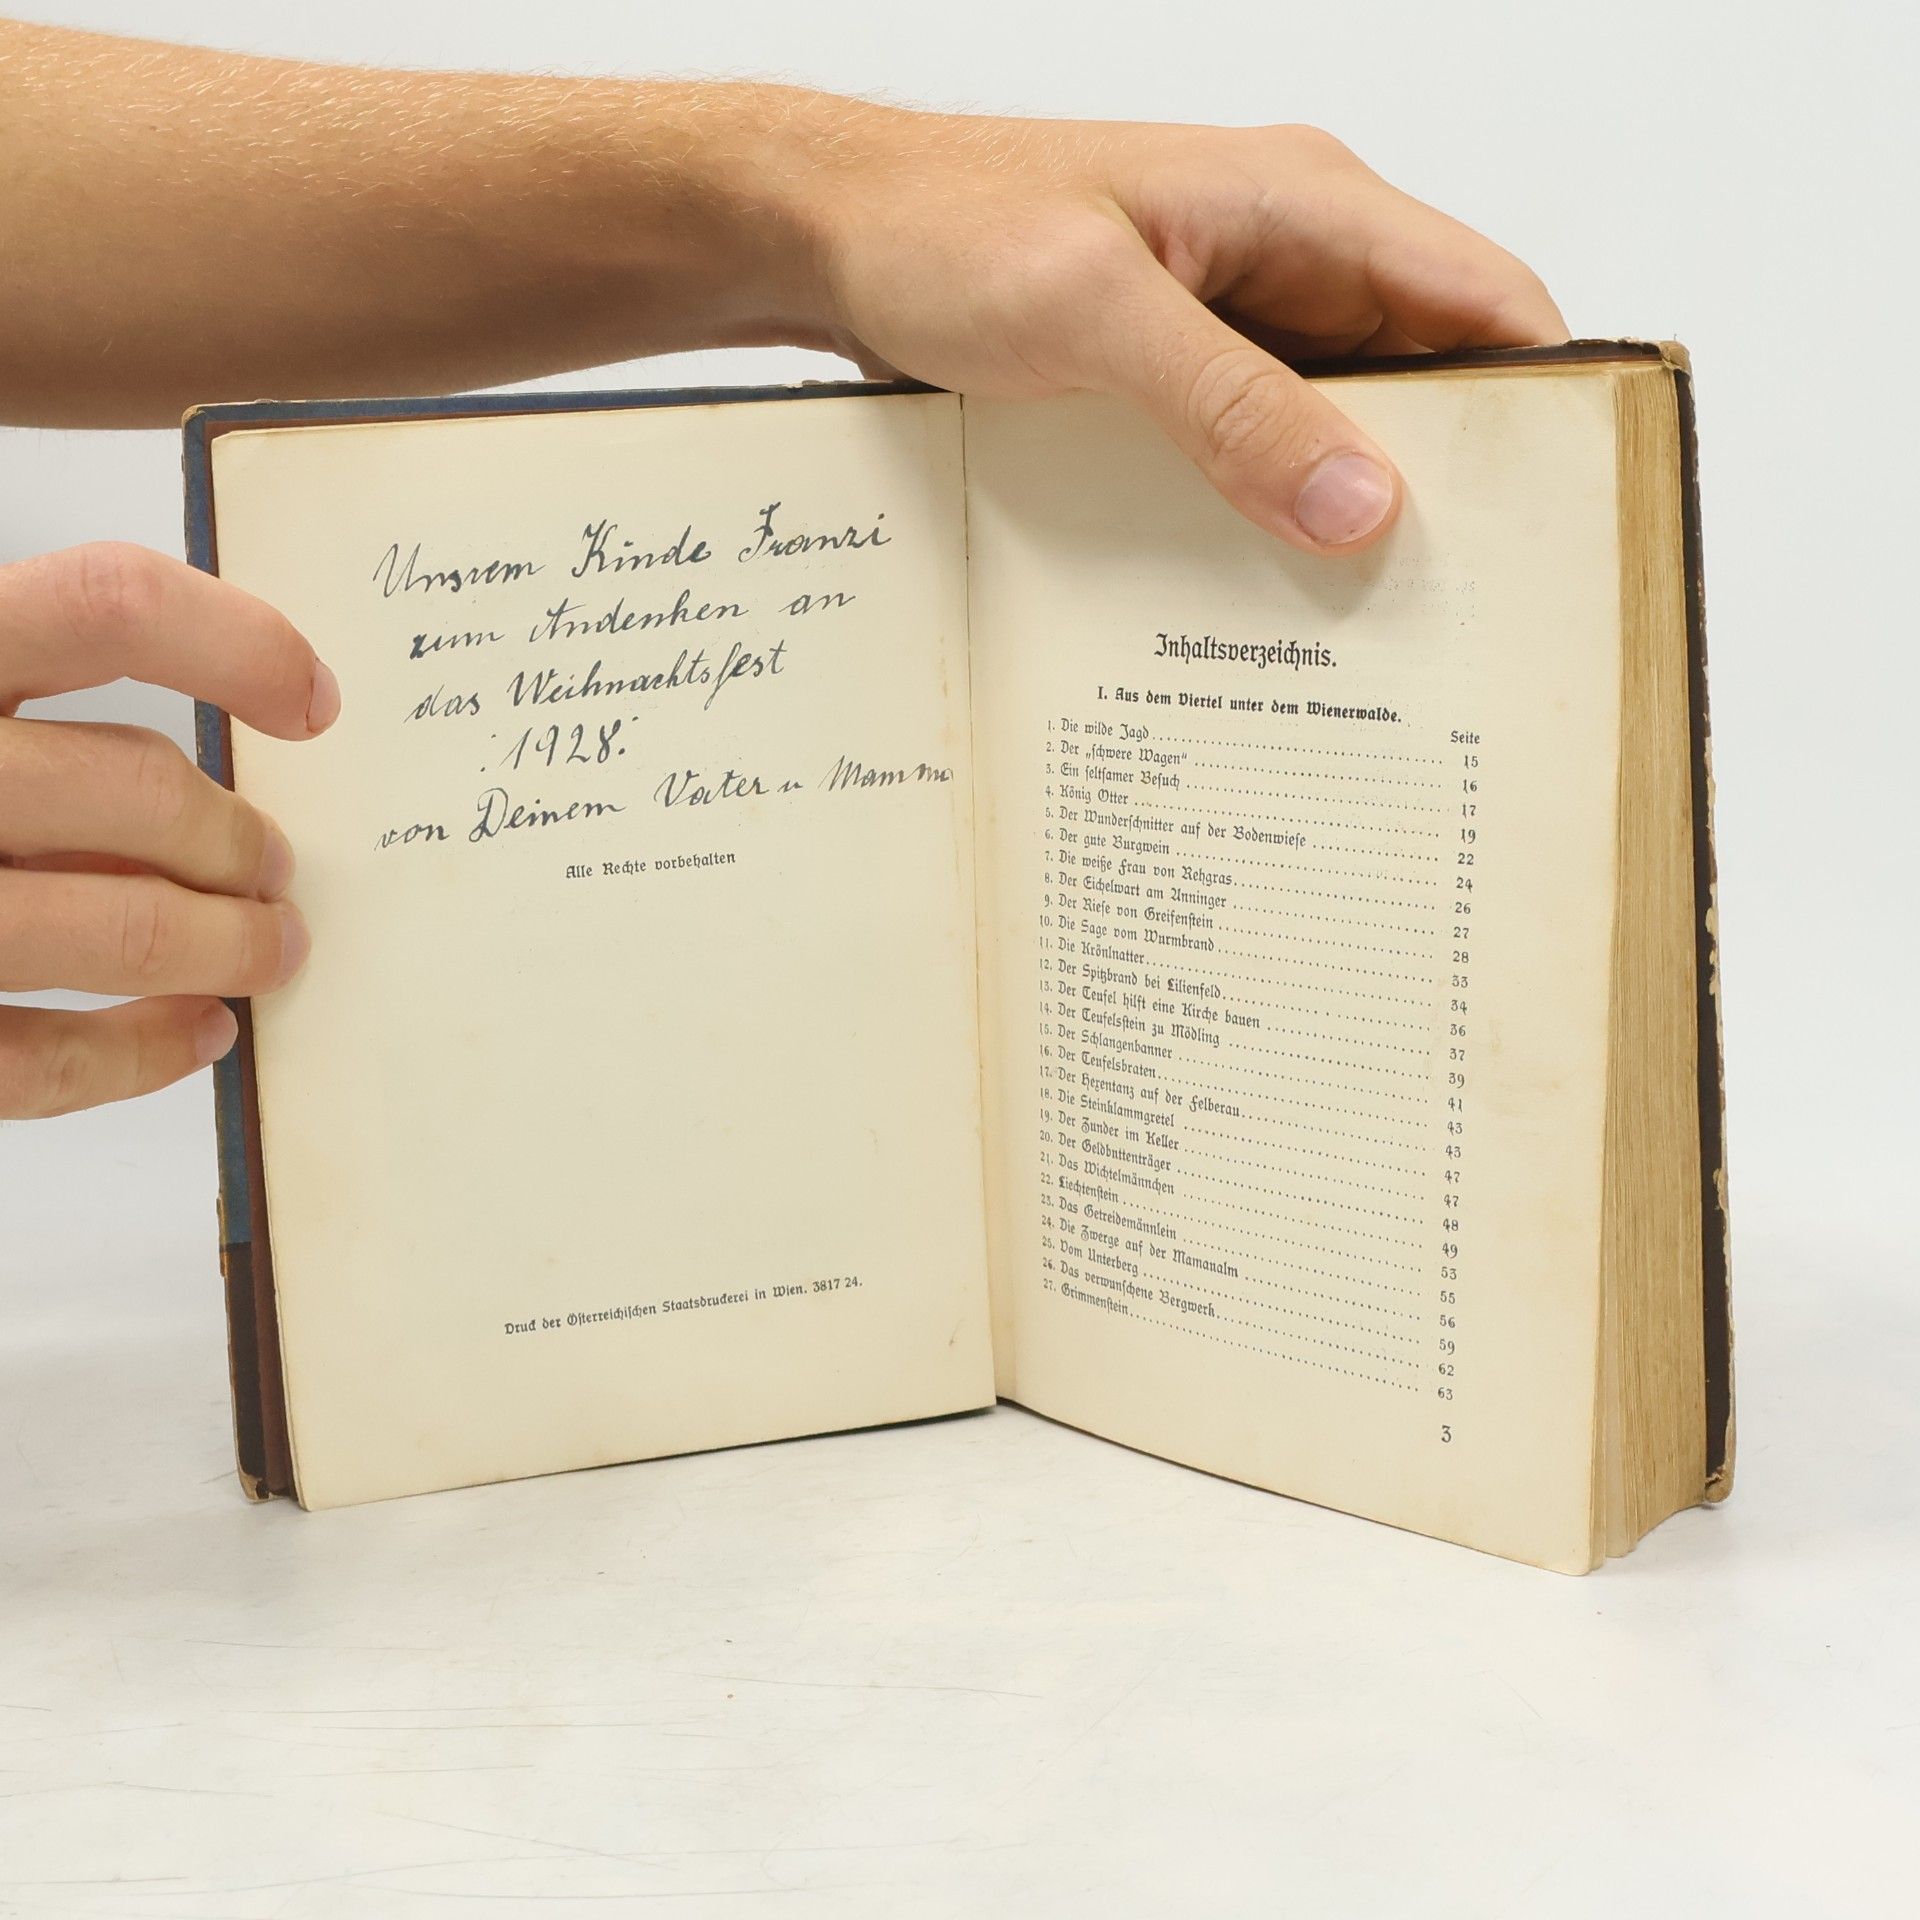 Unsrem Kinde Franzi
zum Andenken an
das Weihnachtsfest
1928.
von Deinem Vater u Mamma
Alle Rechte vorbehalten
Druck der Österreichischen Staatsdruckerei in Wien. 3817 24.
Inhaltsverzeichnis.
I. Aus dem Viertel unter dem Wienerwalde.
Seite
1. Die wilde Jagd 15
2. Der „schwere Wagen“ 16
3. Ein seltsamer Besuch 17
4. König Otter 19
5. Der Wunderschnitter auf der Bodenwiese 22
6. Der gute Burgwein 24
7. Die weiße Frau von Rehgras 26
8. Der Eichelwart am Anninger 27
9. Der Riese von Greifenstein 28
10. Die Sage vom Wurmbrand 33
11. Die Krönlnatter 34
12. Der Spitzbrand bei Lilienfeld 36
13. Der Teufel hilft eine Kirche bauen 37
14. Der Teufelsstein zu Mödling 39
15. Der Schlangenbanner 41
16. Der Teufelsbraten 43
17. Der Hexentanz auf der Felberau 43
18. Die Steinklammgretel 47
19. Der Zunder im Keller 47
20. Der Geldbuttenträger 48
21. Das Wichtelmännchen 49
22. Liechtenstein 53
23. Das Getreidemännlein 55
24. Die Zwerge auf der Mamaualm 56
25. Vom Unterberg 59
26. Das verwunschene Bergwerk 62
27. Grimmenstein 63
3